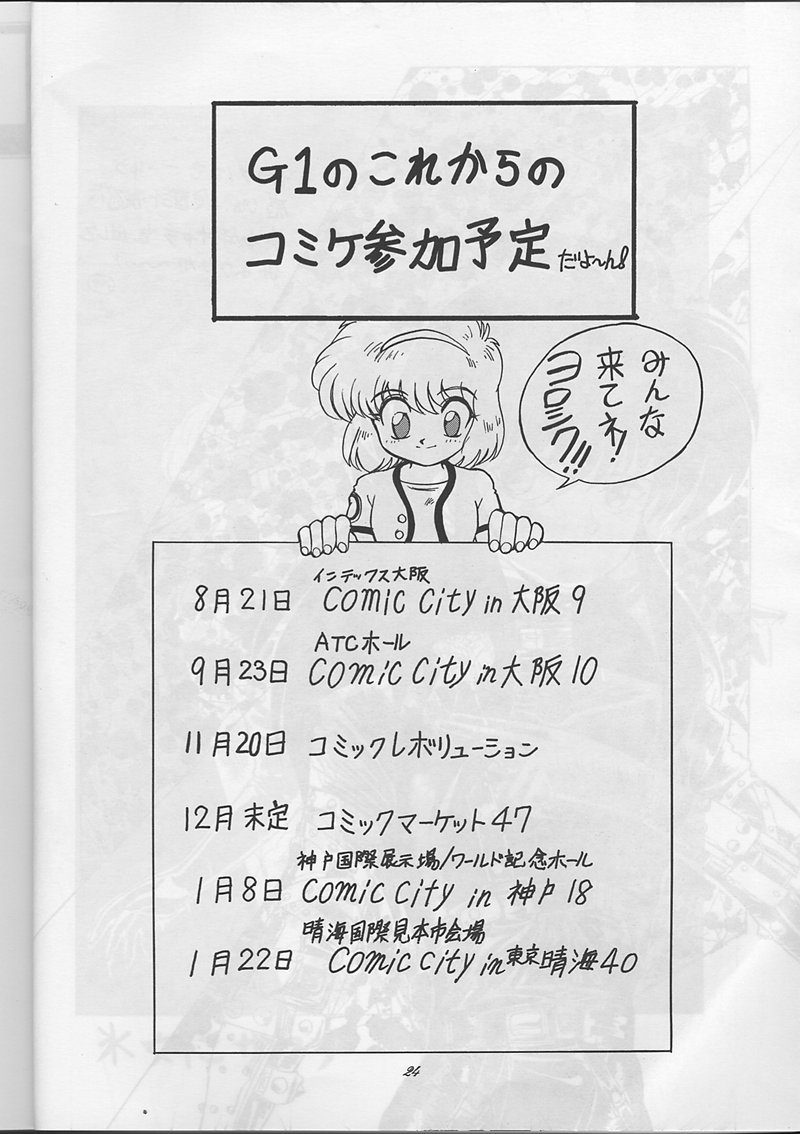 G1のこれからの
コミケ参加予定だよ〜ん!
みんな
来てネ!
ヨロシク!!
インテックス大阪
8月21日 Comic City in 大阪9
ATCホール
9月23日 Comic City in 大阪10
11月20日 コミックレボリューション
12月 未定 コミックマーケット47
神戸国際展示場/ワールド記念ホール
1月8日 Comic City in 神戸18
晴海国際見本市会場
1月22日 Comic City in 東京晴海40
24